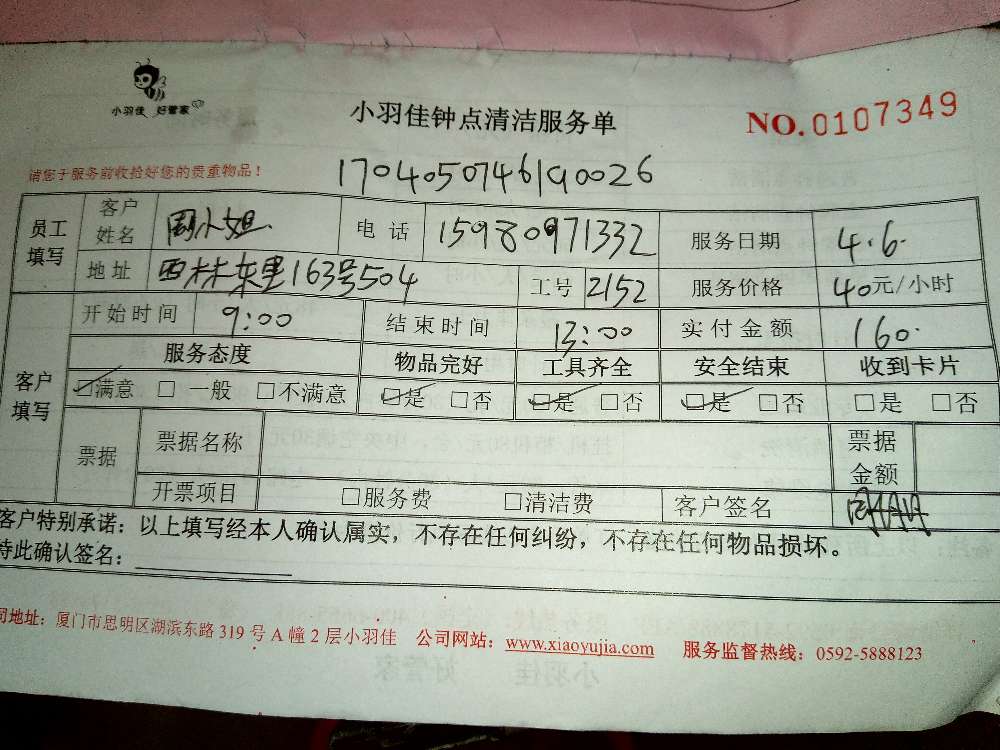 小羽佳 好管家
小羽佳钟点清洁服务单
NO.0107349
请您于服务前收拾好您的贵重物品！
1704050746190026
员工填写 客户姓名 周小姐 电话 15980971332 服务日期 4.6.
地址 西林东里163号504 工号 2152 服务价格 40元/小时
客户填写 开始时间 9:00 结束时间 13:00 实付金额 160.
服务态度 物品完好 工具齐全 安全结束 收到卡片
☑满意 □一般 □不满意 ☑是 □否 ☑是 □否 ☑是 □否 □是 □否
票据 票据名称 票据金额
开票项目 □服务费 □清洁费 客户签名
客户特别承诺：以上填写经本人确认属实，不存在任何纠纷，不存在任何物品损坏。
特此确认签名：
司地址：厦门市思明区湖滨东路319号A幢2层小羽佳 公司网站：www.xiaoyujia.com 服务监督热线：0592-5888123